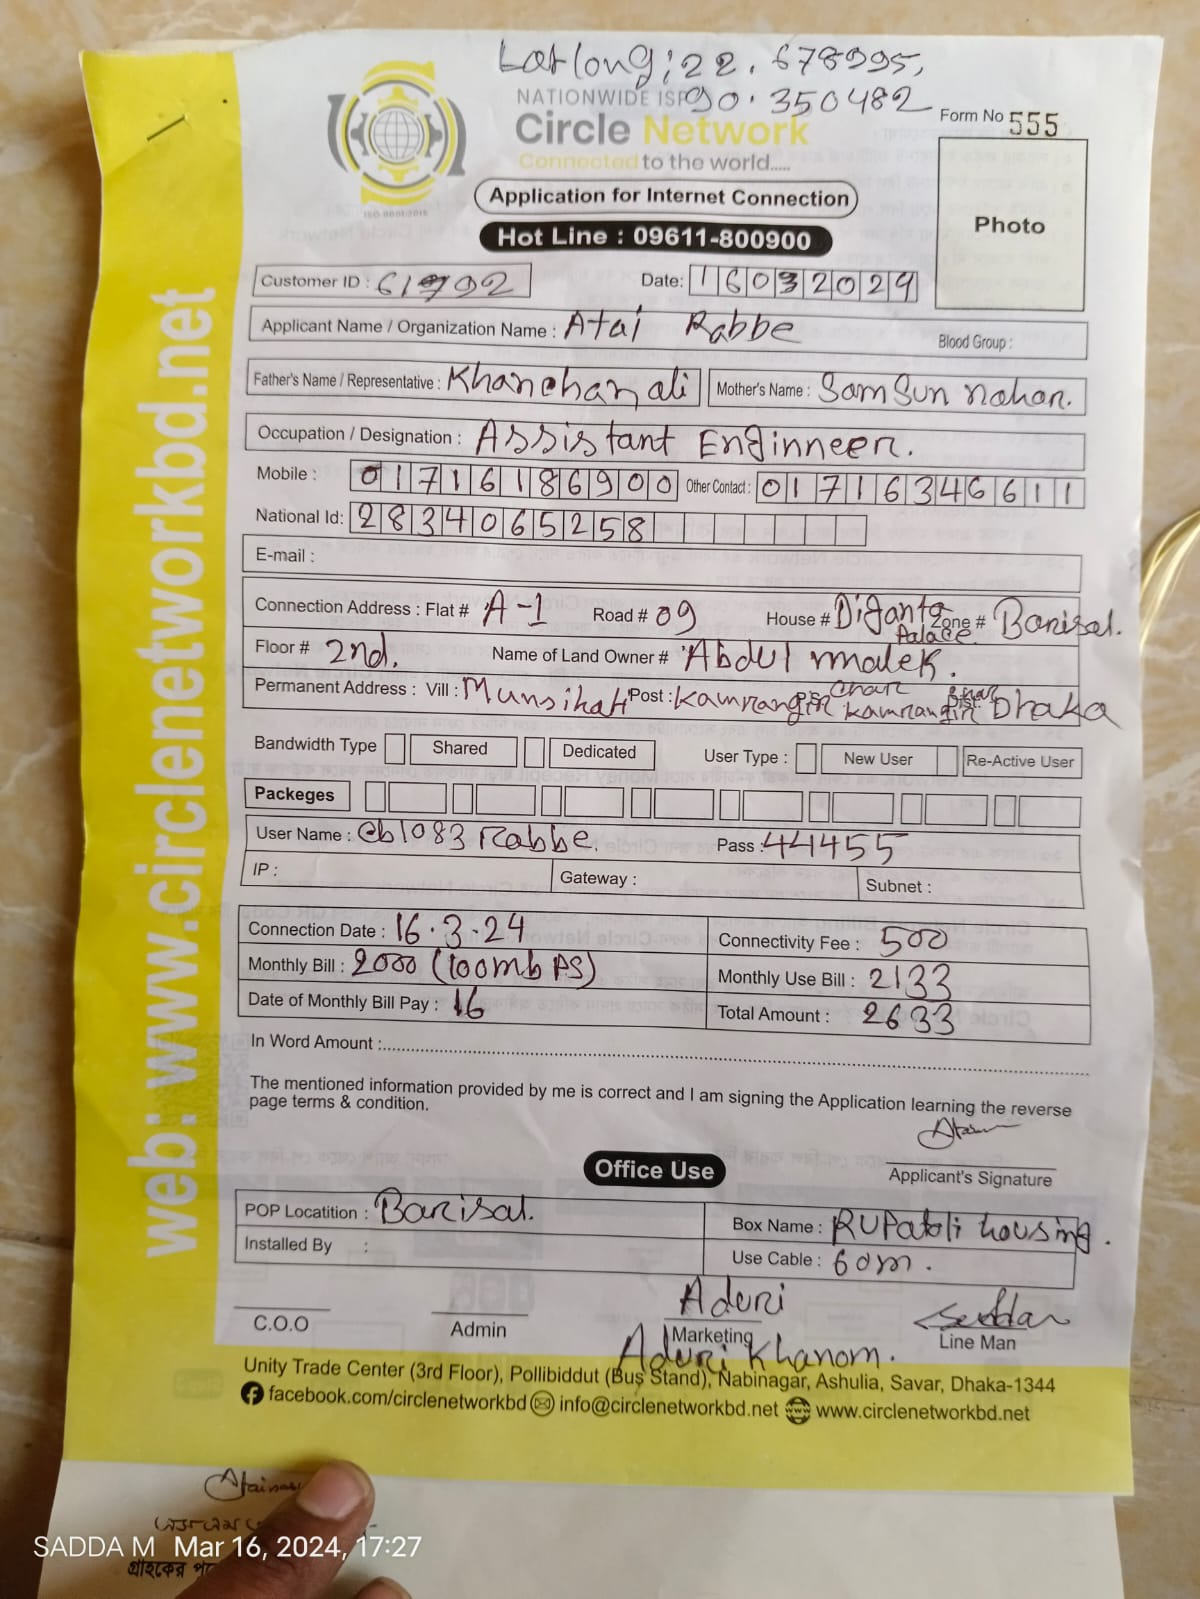 Latlong: 22.678995,
90.350482
NATIONWIDE ISP
Circle Network
Connected to the world.....
ISO 9001:2015
Form No 555
Application for Internet Connection
Hot Line : 09611-800900
Photo
Customer ID : 61792 Date: 16032024
Applicant Name / Organization Name : Atai Rabbe Blood Group :
Father's Name / Representative : Khanchan ali Mother's Name : Samsun nahar.
Occupation / Designation : Assistant Enginneer.
Mobile : 01716186900 Other Contact : 01716346611
National Id: 2834065258
E-mail :
Connection Address : Flat # A-1 Road # 09 House # Diganto Palace Zone # Barisal.
Floor # 2nd. Name of Land Owner # Abdul malek.
Permanent Address : Vill : Munsihati Post : Kamrangir char Kamrangir char Dist: Dhaka
Bandwidth Type Shared Dedicated User Type : New User Re-Active User
Packeges
User Name : cb1083 rabbe. Pass : 44455
IP : Gateway : Subnet :
Connection Date : 16.3.24 Connectivity Fee : 500
Monthly Bill : 2000 (100mbps) Monthly Use Bill : 2133
Date of Monthly Bill Pay : 16 Total Amount : 2633
In Word Amount :
The mentioned information provided by me is correct and I am signing the Application learning the reverse
page terms & condition.
Applicant's Signature
Office Use
POP Locatition : Barisal. Box Name : RUPatoli housing.
Installed By : Use Cable : 60m.
Aduri
C.O.O Admin Marketing Line Man
Aduri Khanom.
Unity Trade Center (3rd Floor), Pollibiddut (Bus Stand), Nabinagar, Ashulia, Savar, Dhaka-1344
facebook.com/circlenetworkbd info@circlenetworkbd.net www.circlenetworkbd.net
web: www.circlenetworkbd.net
SADDA M Mar 16, 2024, 17:27
গ্রাহকের